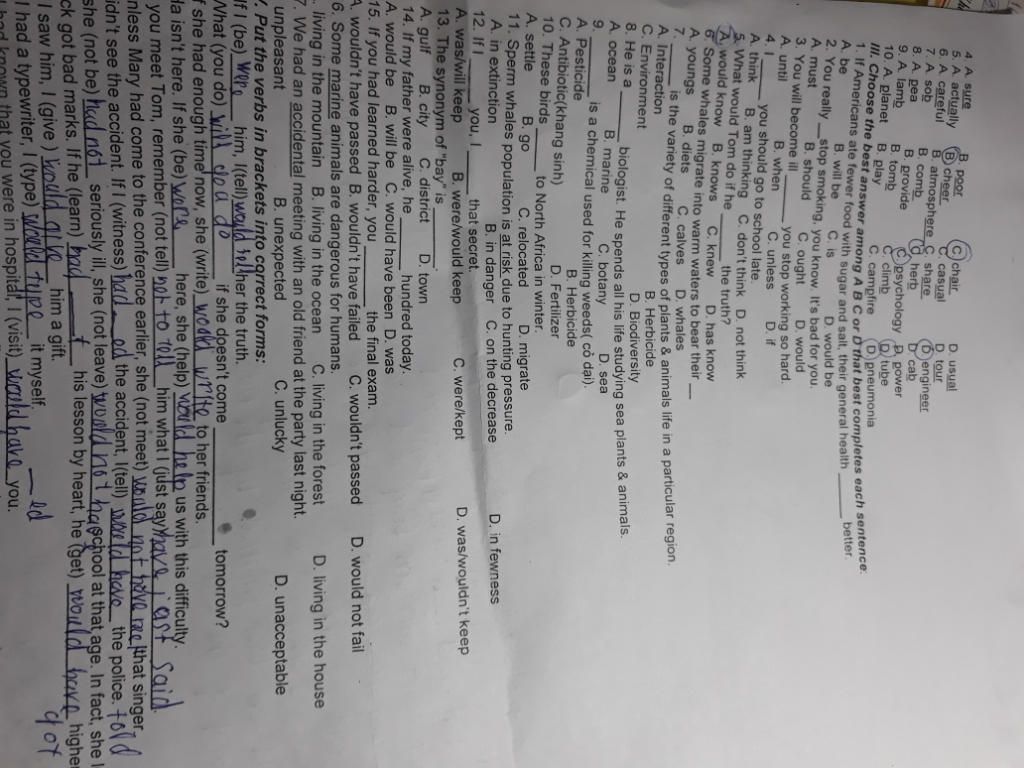 4. A. sure B. poor C. chair D. usual
5. A. actually B. cheer C. casual D. tour
6. A. careful B. atmosphere C. share D. engineer
7. A. sob B. comb C. herb D. cab
8. A. pea B. provide C. psychology D. power
9. A. lamb B. tomb C. climb D. tube
10. A. planet B. play C. campfire D. pneumonia
III. Choose the best answer among A B C or D that best completes each sentence.
1. If Americans ate fewer food with sugar and salt, their general health ______ better.
A. be B. will be C. is D. would be
2. You really ___ stop smoking, you know. It's bad for you.
A. must B. should C. ought D. would
3. You will become ill ______ you stop working so hard.
A. until B. when C. unless D. if
4. I ______ you should go to school late.
A. think B. am thinking C. don't think D. not think
5. What would Tom do if he ______ the truth?
A. would know B. knows C. knew D. has know
6 Some whales migrate into warm waters to bear their ___
A. youngs B. diets C. calves D. whales
7. ______ is the variety of different types of plants & animals life in a particular region.
A. Interaction B. Herbicide
C. Environment D. Biodiversity
8. He is a ______ biologist. He spends all his life studying sea plants & animals.
A. ocean B. marine C. botany D. sea
9. ______ is a chemical used for killing weeds( cỏ dại).
A. Pesticide B. Herbicide
C. Antibiotic(kháng sinh) D. Fertilizer
10. These birds ______ to North Africa in winter.
A. settle B. go C. relocated D. migrate
11. Sperm whales population is at risk due to hunting pressure.
A. in extinction B. in danger C. on the decrease D. in fewness
12. If I ______ you, I ______ that secret.
A. was/will keep B. were/would keep C. were/kept D. was/wouldn't keep
13. The synonym of "bay" is ______.
A. gulf B. city C. district D. town
14. If my father were alive, he ______ hundred today.
A. would be B. will be C. would have been D. was
15. If you had learned harder, you ______ the final exam.
A. wouldn't have passed B. wouldn't have failed C. wouldn't passed D. would not fail
6. Some marine animals are dangerous for humans.
. living in the mountain B. living in the ocean C. living in the forest D. living in the house
7. We had an accidental meeting with an old friend at the party last night.
unpleasant B. unexpected C. unlucky D. unacceptable
. Put the verbs in brackets into correct forms:
If I (be) were him, I(tell) would tell her the truth.
What (you do) will do if she doesn't come ______ tomorrow?
f she had enough time now, she (write) would write to her friends.
isn't here. If she (be) were here, she (help) would help us with this difficulty.
you meet Tom, remember (not tell) not to told him what I (just say) have just said.
nless Mary had come to the conference earlier, she (not meet) would not have met that singer.
idn't see the accident. If I (witness) had ed the accident, I(tell) would have told the police.
she (not be) had not seriously ill, she (not leave) would not school at that age. In fact, she
ck got bad marks. If he (learn) had t his lesson by heart, he (get) would have got higher
I saw him, I (give ) would give him a gift.
I had a typewriter, I (type) would type it myself.
known that you were in hospital, I (visit) would have ed you.